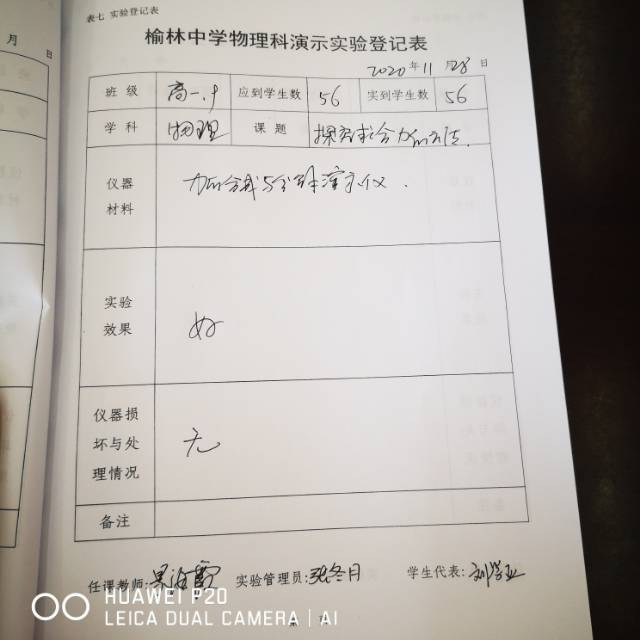 表七 实验登记表
榆林中学物理科演示实验登记表
2020年11月28日
班级 高一.9 应到学生数 56 实到学生数 56
学科 物理 课题 探究求合力的方法.
仪器材料 力的合成与分解演示仪.
实验效果 好
仪器损坏与处理情况 无
备注
任课教师: 实验管理员:张冬月 学生代表:刘学亚
月 日
HUAWEI P20
LEICA DUAL CAMERA | AI